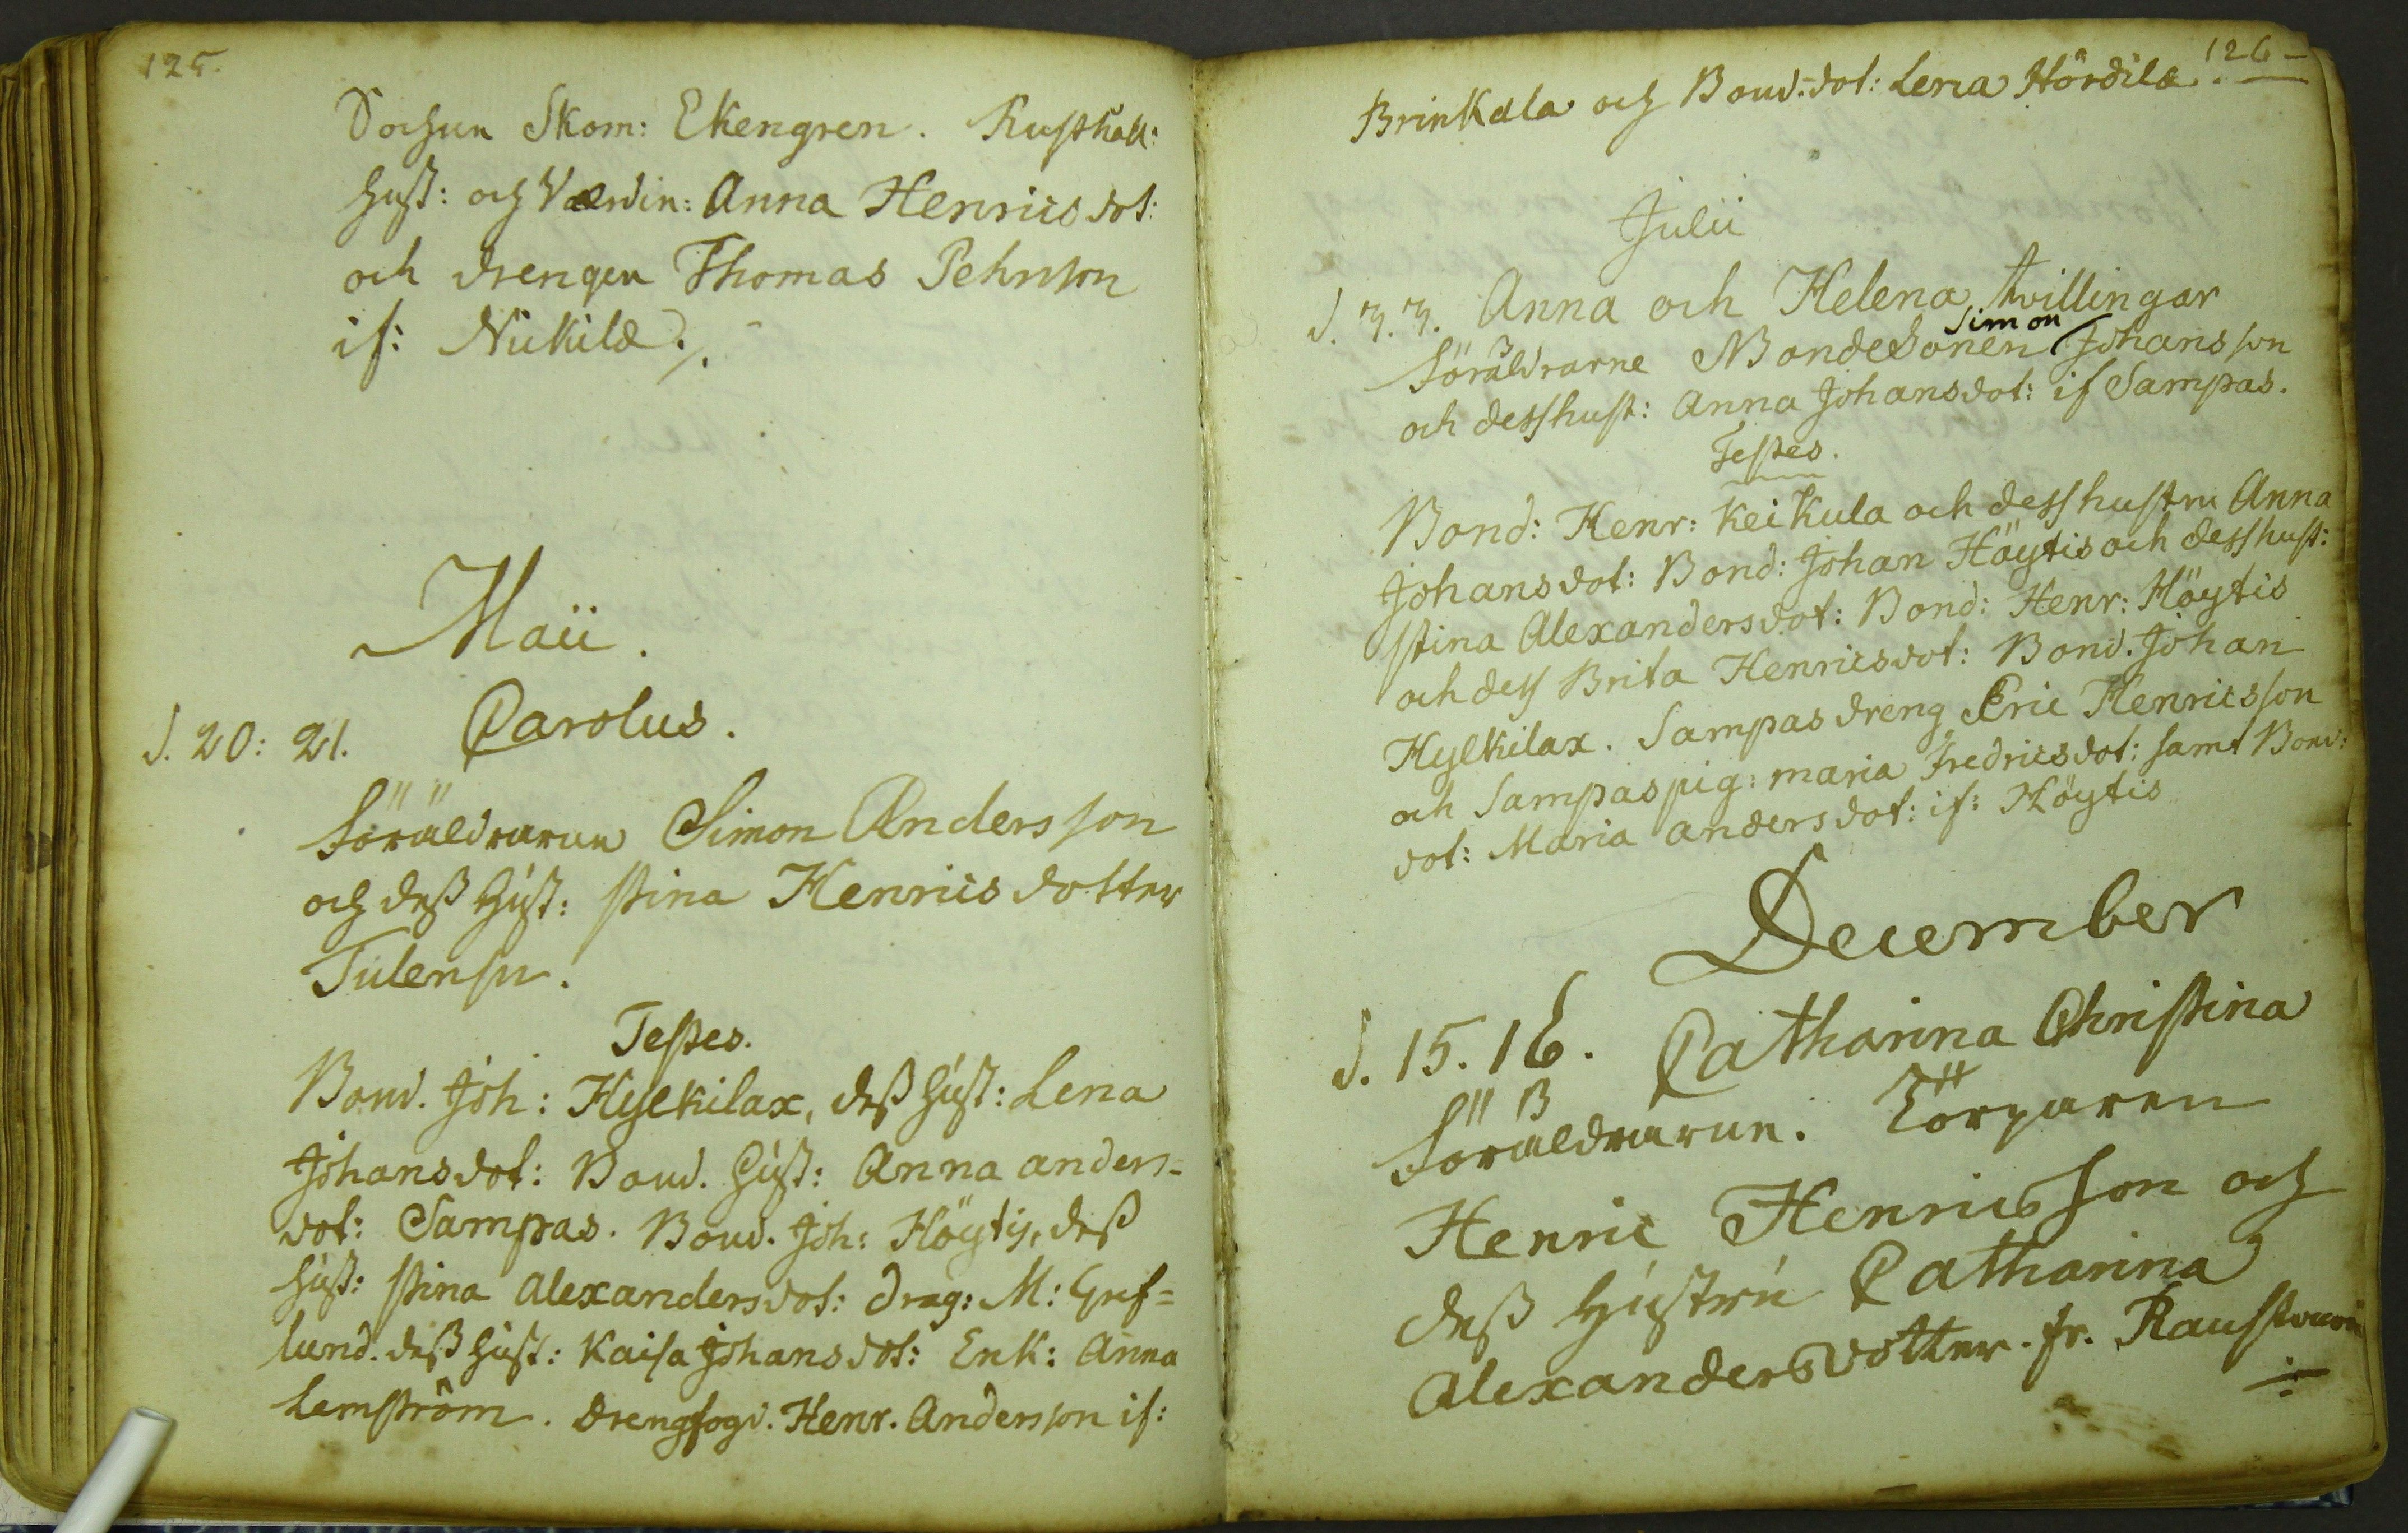 125.
Sochnen Skom: Ekengren. Rusthåll:
Hust: och Værdin: Anna Henricsdot:
och drengen Thomas Pehrson
if: Nickilæ.
Maii.
d. 20: 21. Carolus.
Föräldrarne Simon Andersson
och deß Hust: Stina Henricsdotter
Tulensu.
Testes.
Bond. Joh: Kylkilax, deß Hust: Lena
Johansdot: Bond. Hust: Anna anders-
dot: Sampas. Bond. Joh: Höytis, deß
Hust: Stina Alexandersdot: Drag: M:
lund. deß Hust: Kaisa Johansdot: Enk: Anna
Lemström. Drengfogd. Henr. Andersson if:
126-
Brinkala och Bond:dot: Lena Hördilæ.
Julii
d. 7. 7. Anna och Helena, tvillingar
Föräldrarne Bondesonen Simon Johansson
och dess hust: Anna Johansdot: if Sampas.
Testes.
Bond: Henr: Keikula och dess hustru Anna
Johansdot: Bond: Johan Höytis och dess hust:
Stina Alexandersdot: Bond: Henr: Höytis
och dess Brita Henricsdot: Bond. Johan
Kylkilax. Sampas dreng Eric Henricsson
och Sampas pig: maria Fredricsdot: samt Bond:
dot: Maria andersdot: if: Höytis
December
d. 15. 16. Catharina Christina
Föräldrarne. Torparen
Henric Henricsson och
deß Hustru Catharina
Alexandersdotter. fr.